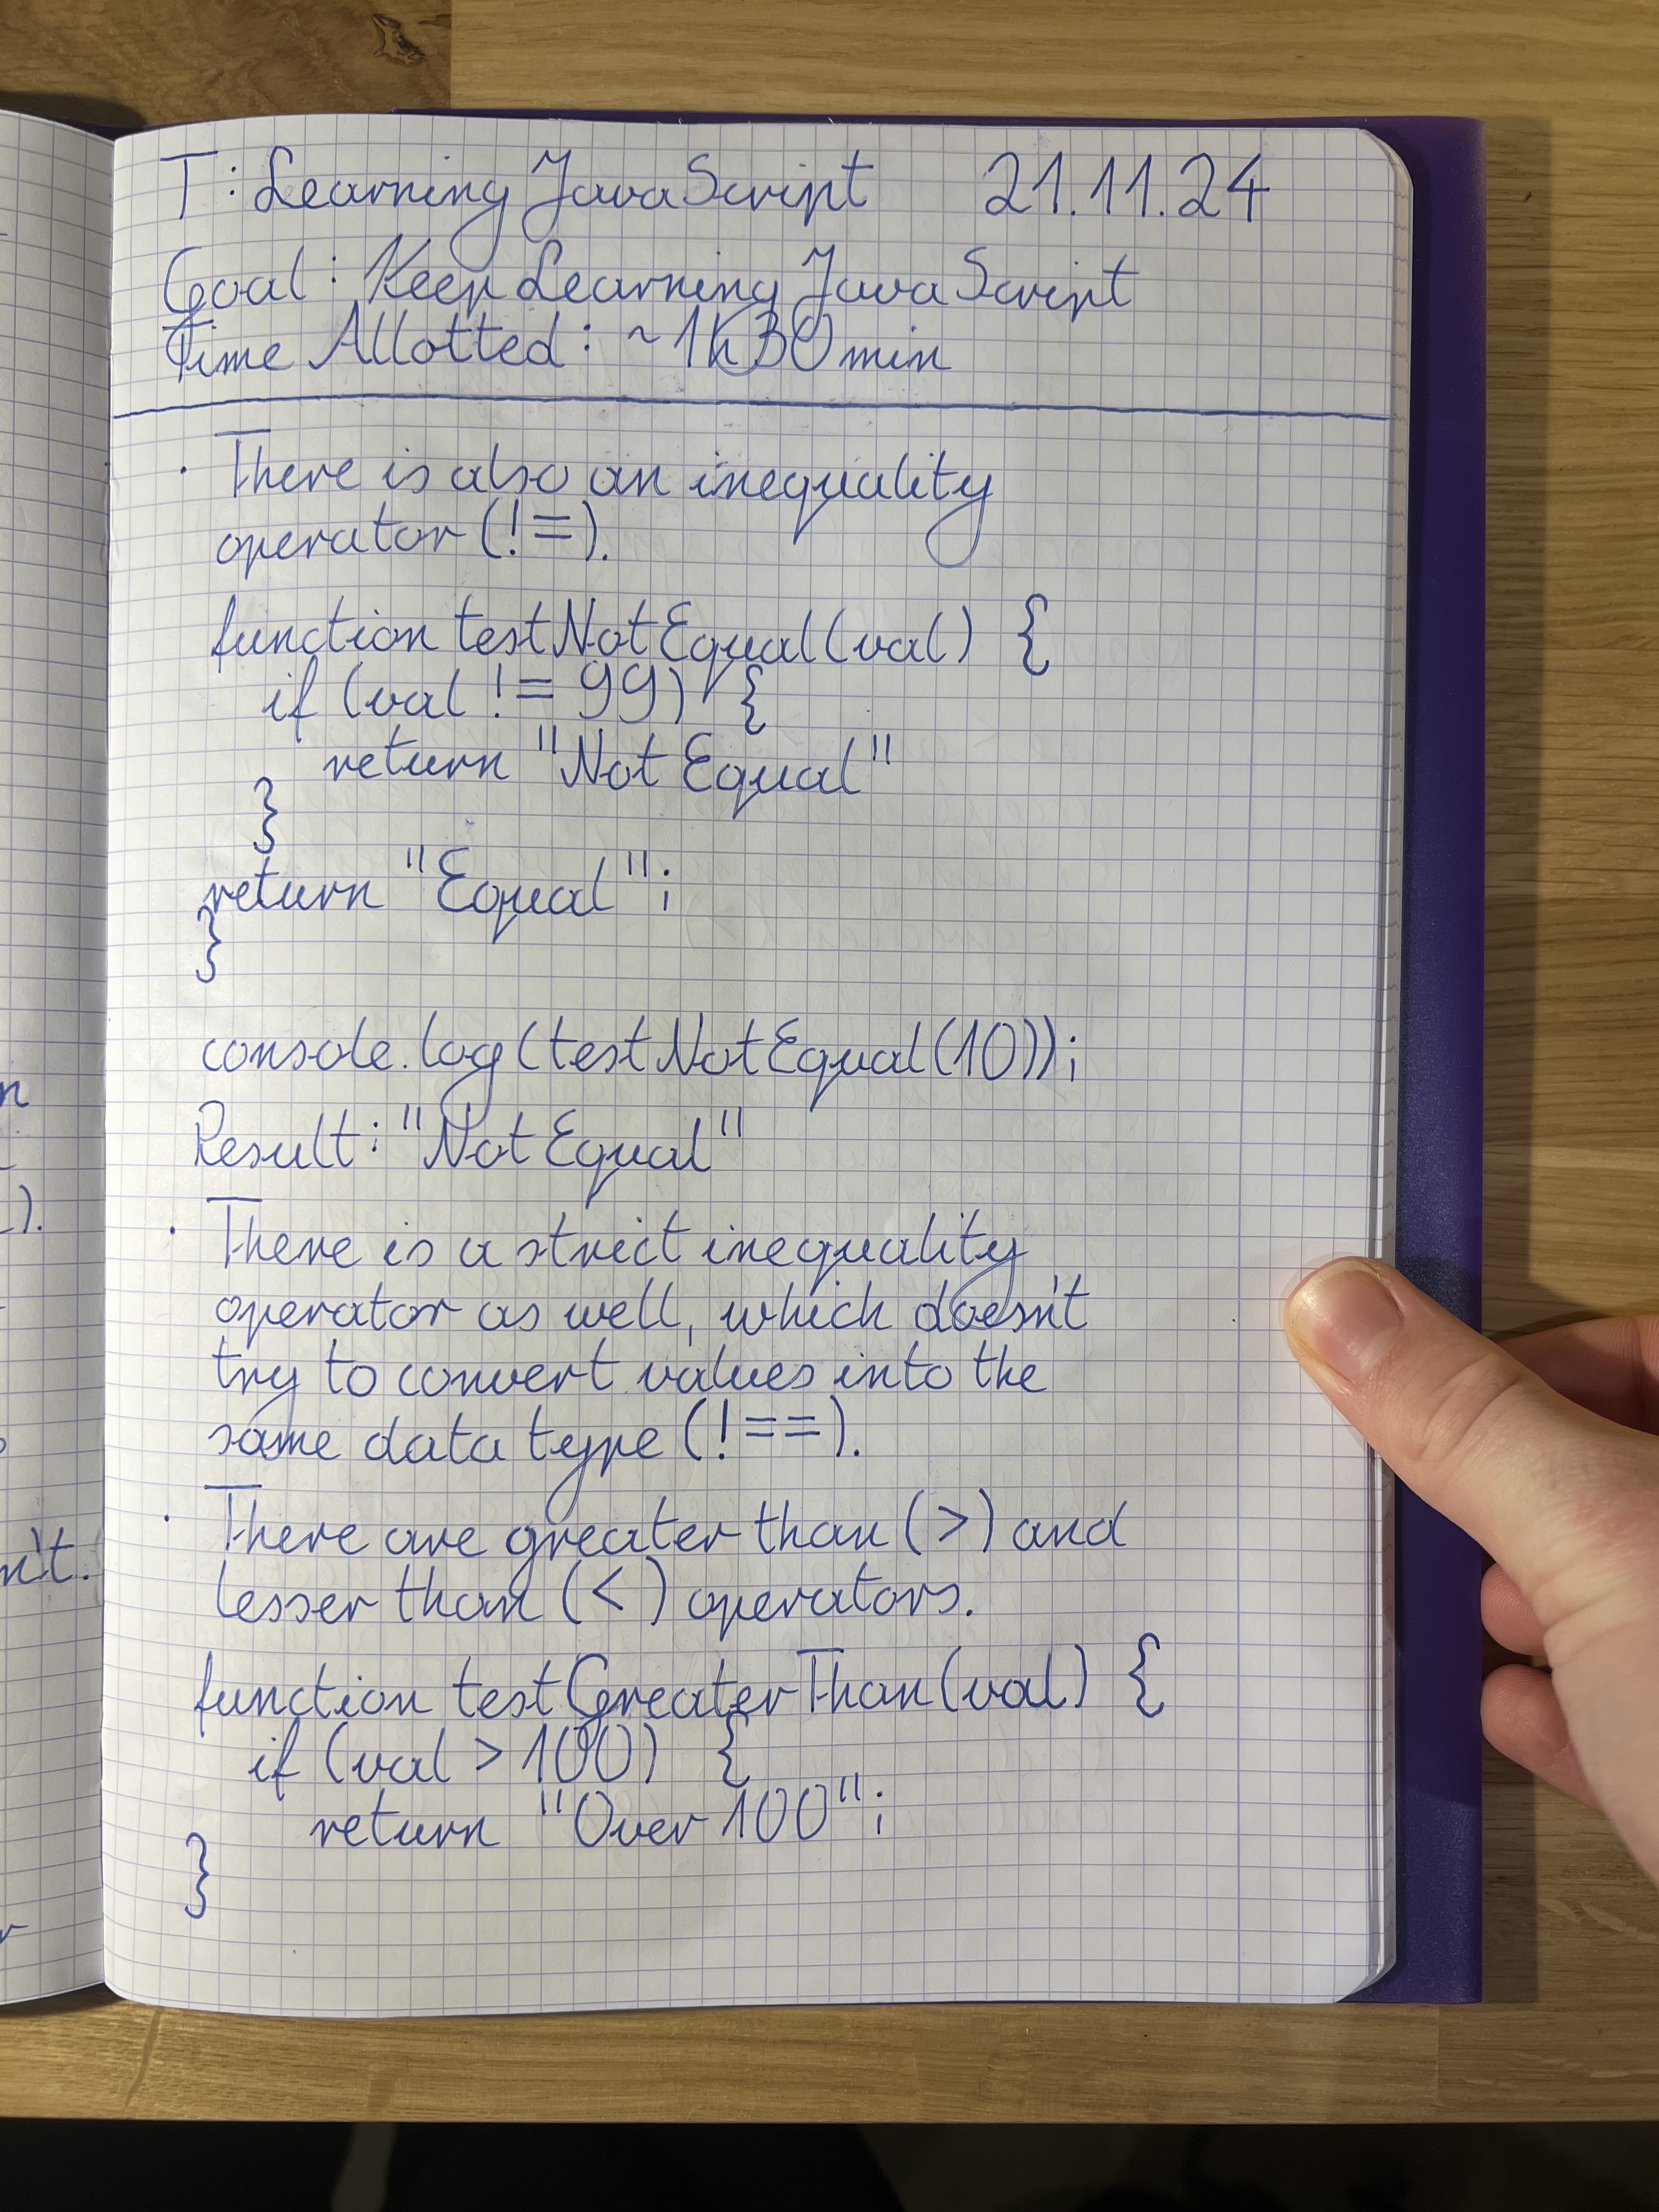 T: Learning JavaScript 21.11.24
Goal: Keep Learning JavaScript
Time Allotted: ~1h30min
· There is also an inequality
operator (!=).
function testNotEqual(val) {
if (val != 99) {
return "Not Equal"
}
return "Equal";
}
console.log(testNotEqual(10));
Result: "Not Equal"
· There is a strict inequality
operator as well, which doesn't
try to convert values into the
same data type (!==).
· There are greater than (>) and
lesser than (<) operators.
function testGreaterThan(val) {
if (val > 100) {
return "Over 100";
}